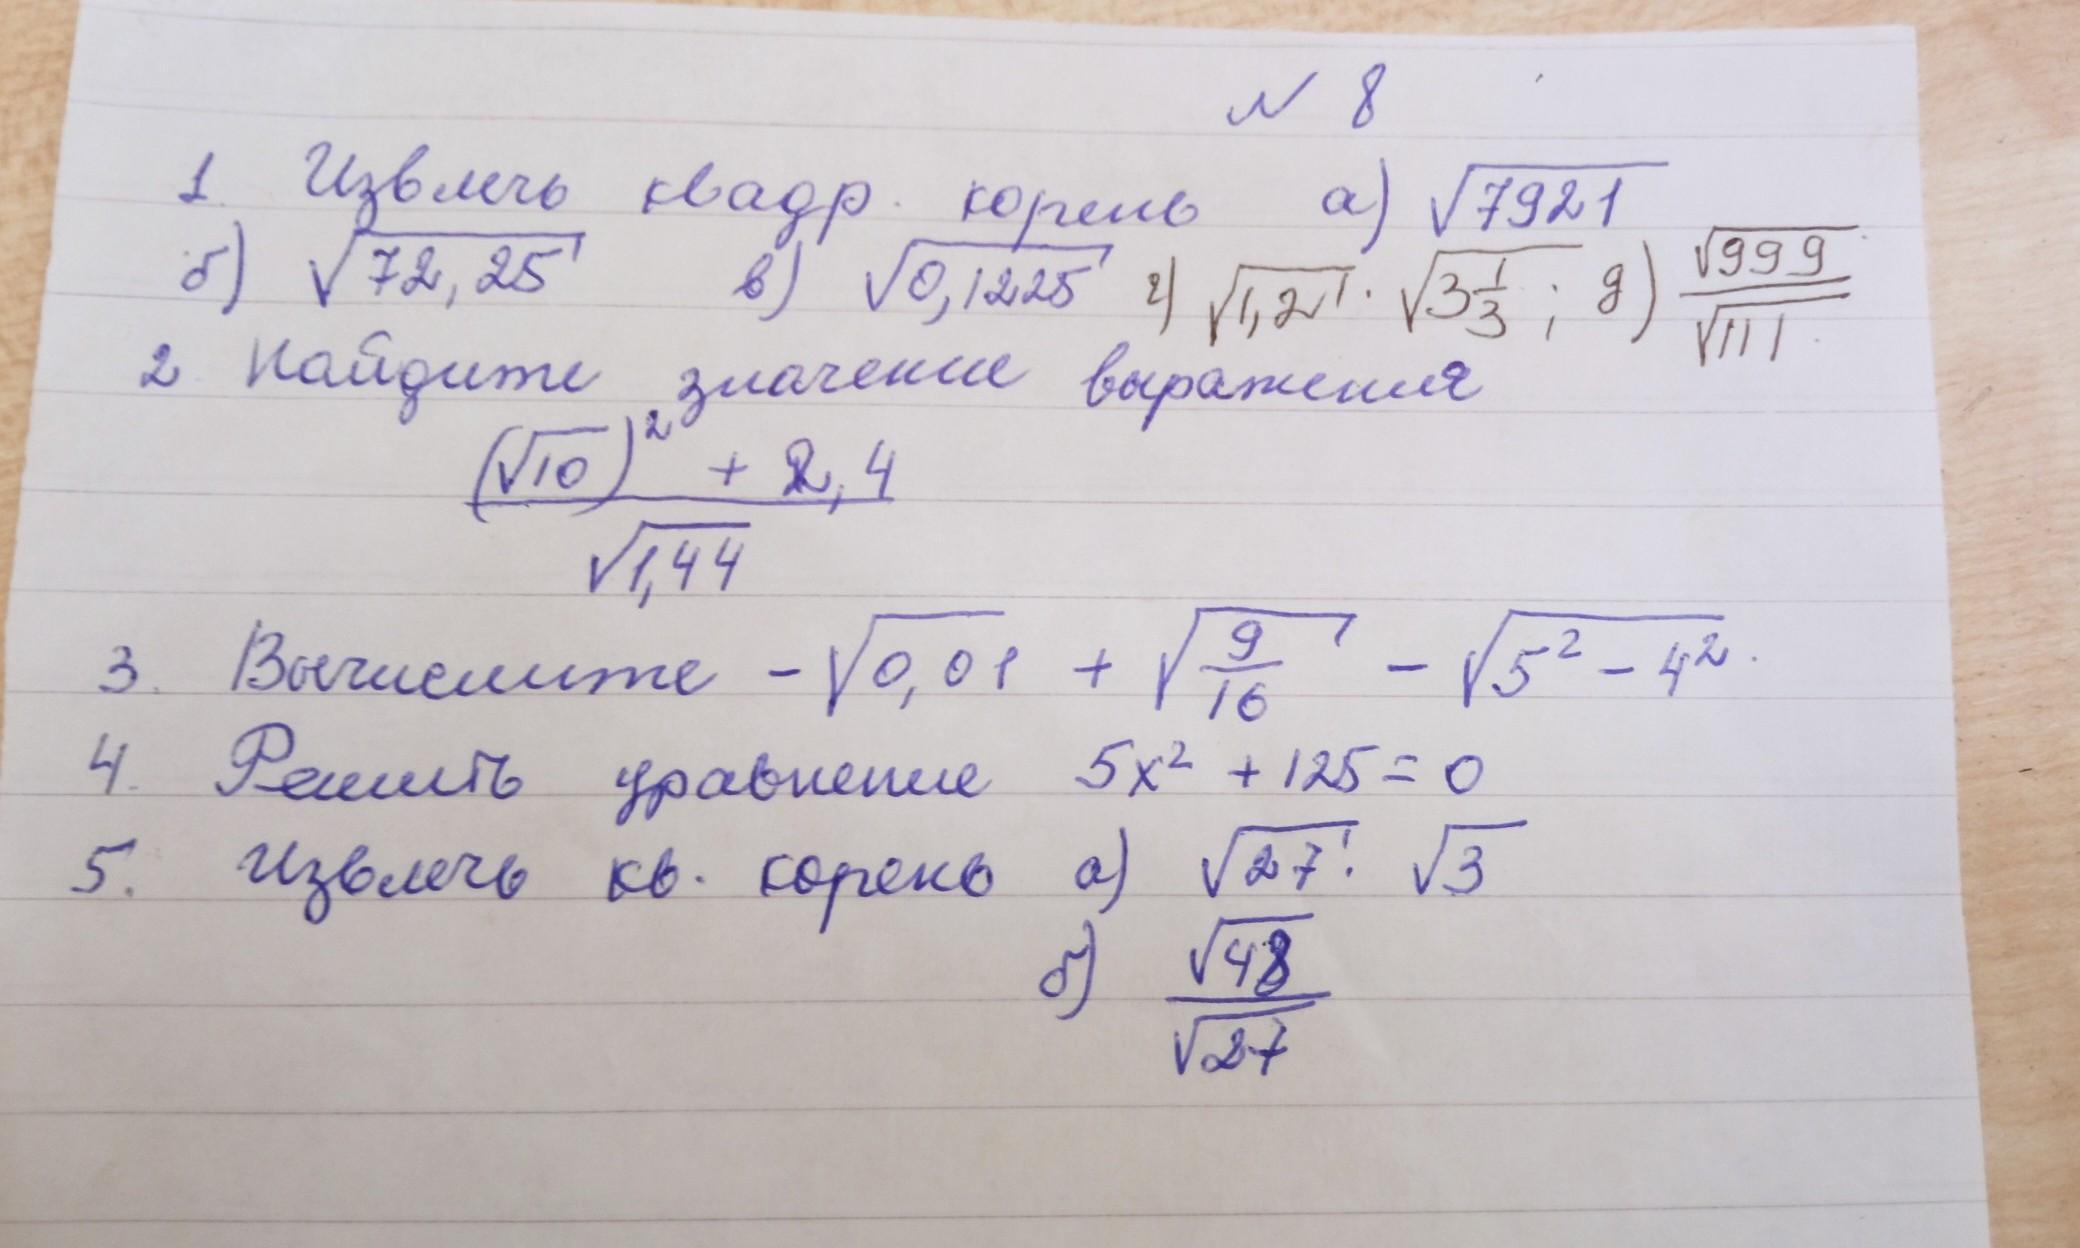 № 8
1. Извлечь квадр. корень а) √7921
б) √72,25 в) √0,1225 г) √1,2 · √3 1/3 ; д) √999/√111.
2 Найдите значение выражения
((√10)² + 2,4)/√1,44
3. Вычислите -√0,01 + √(9/16) - √(5² - 4²).
4. Решить уравнение 5x² + 125 = 0
5. Извлечь кв. корень а) √27 · √3
б) √48/√27